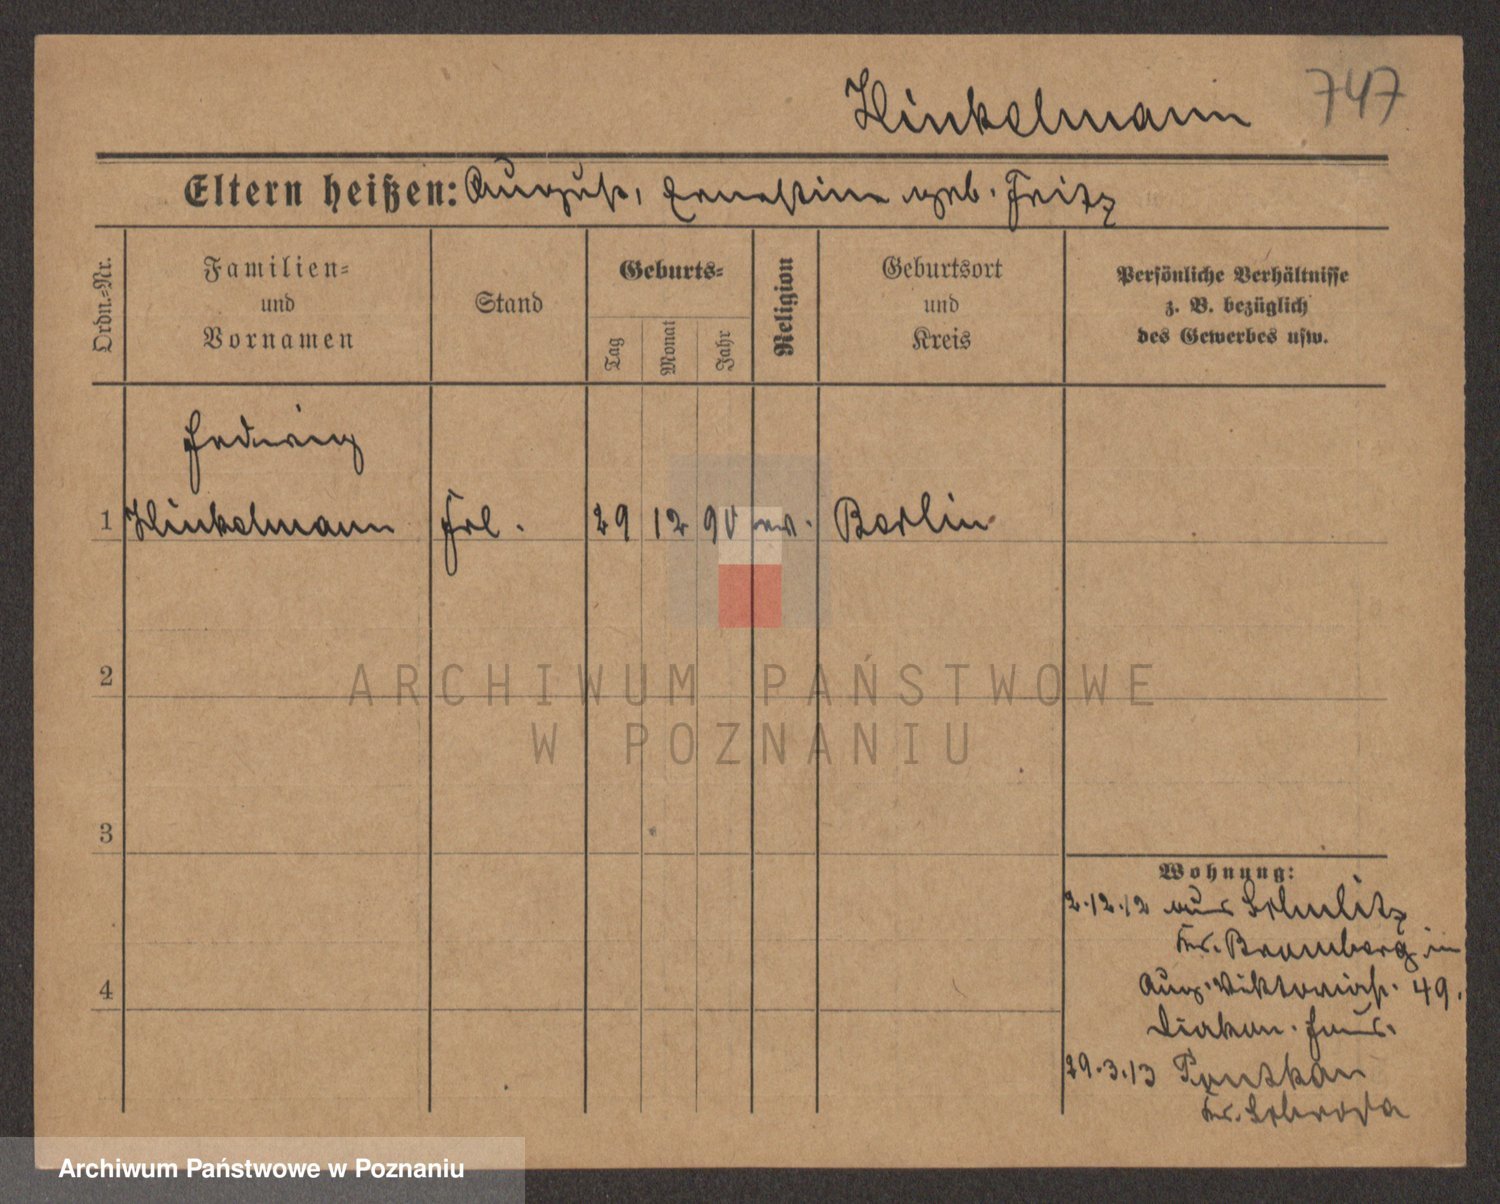 Winkelmann 747
Eltern heißen: August, Ernestine geb. Fritz
Ordn.=Nr.
Familien=
und
Vornamen
Stand
Geburts=
Tag
Monat
Jahr
Religion
Geburtsort
und
Kreis
Persönliche Verhältnisse
z. B. bezüglich
des Gewerbes usw.
Hedwig
1 Winkelmann Frl. 29 12 90 ev. Berlin
2
3
4
Wohnung:
2.12.12 aus Schulitz
Kr. Bromberg in
Aug. Viktoriastr. 49.
Diakon. Haus.
29.3.13
Kr. Schroda
ARCHIWUM PAŃSTWOWE
W POZNANIU
Archiwum Państwowe w Poznaniu